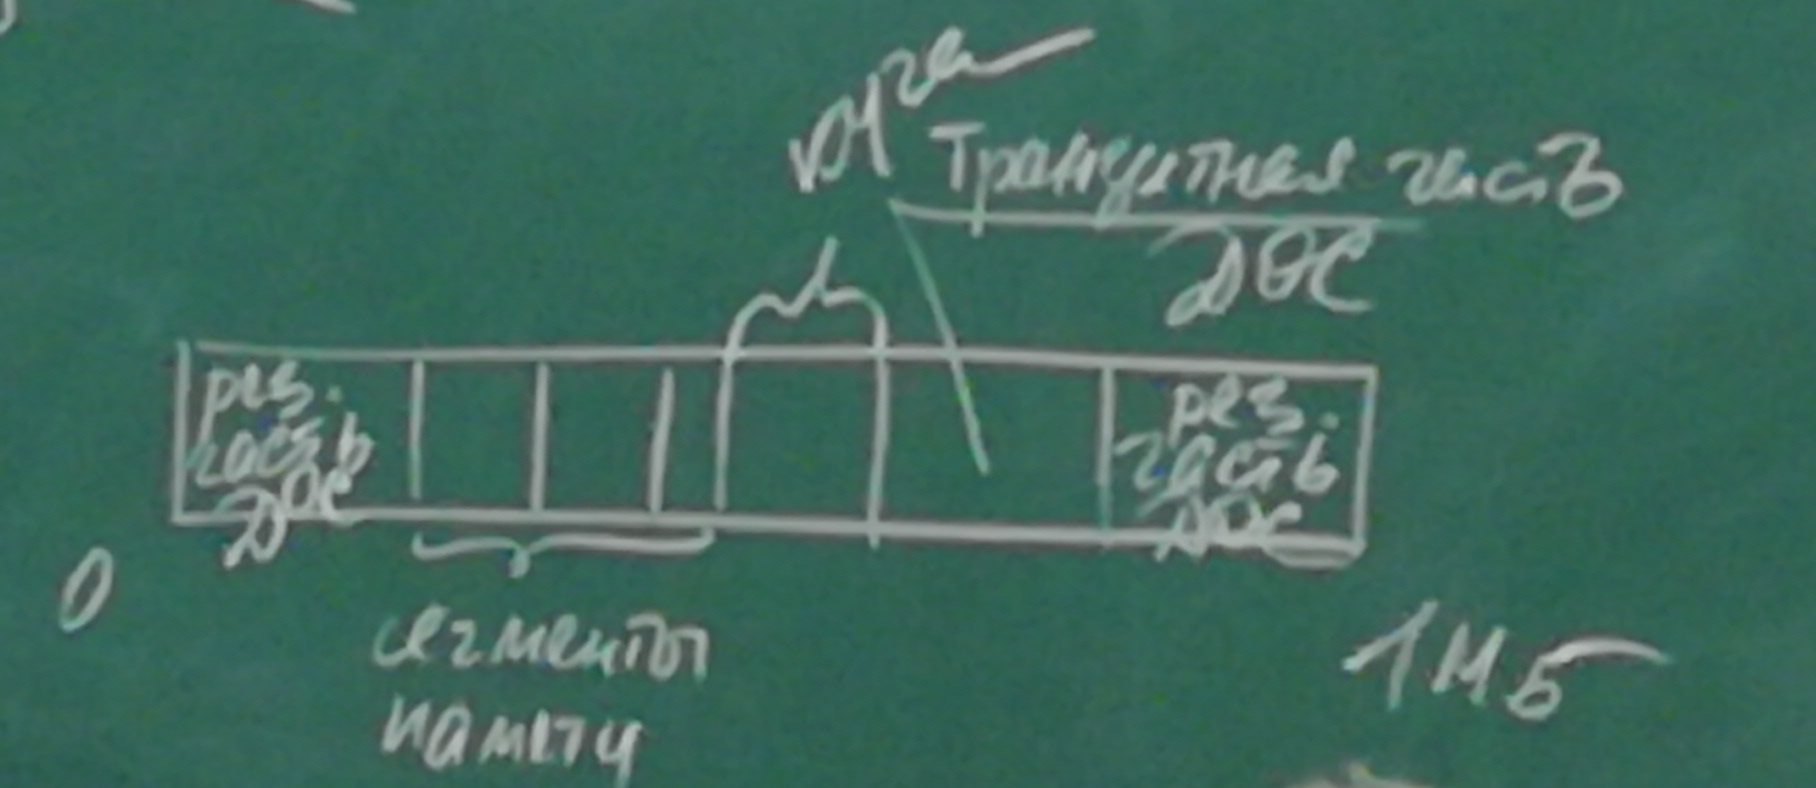 Транзитная часть
ДОС
рез.
часть
ДОС
рез.
часть
ДОС
0
сегменты
памяти
1МБ